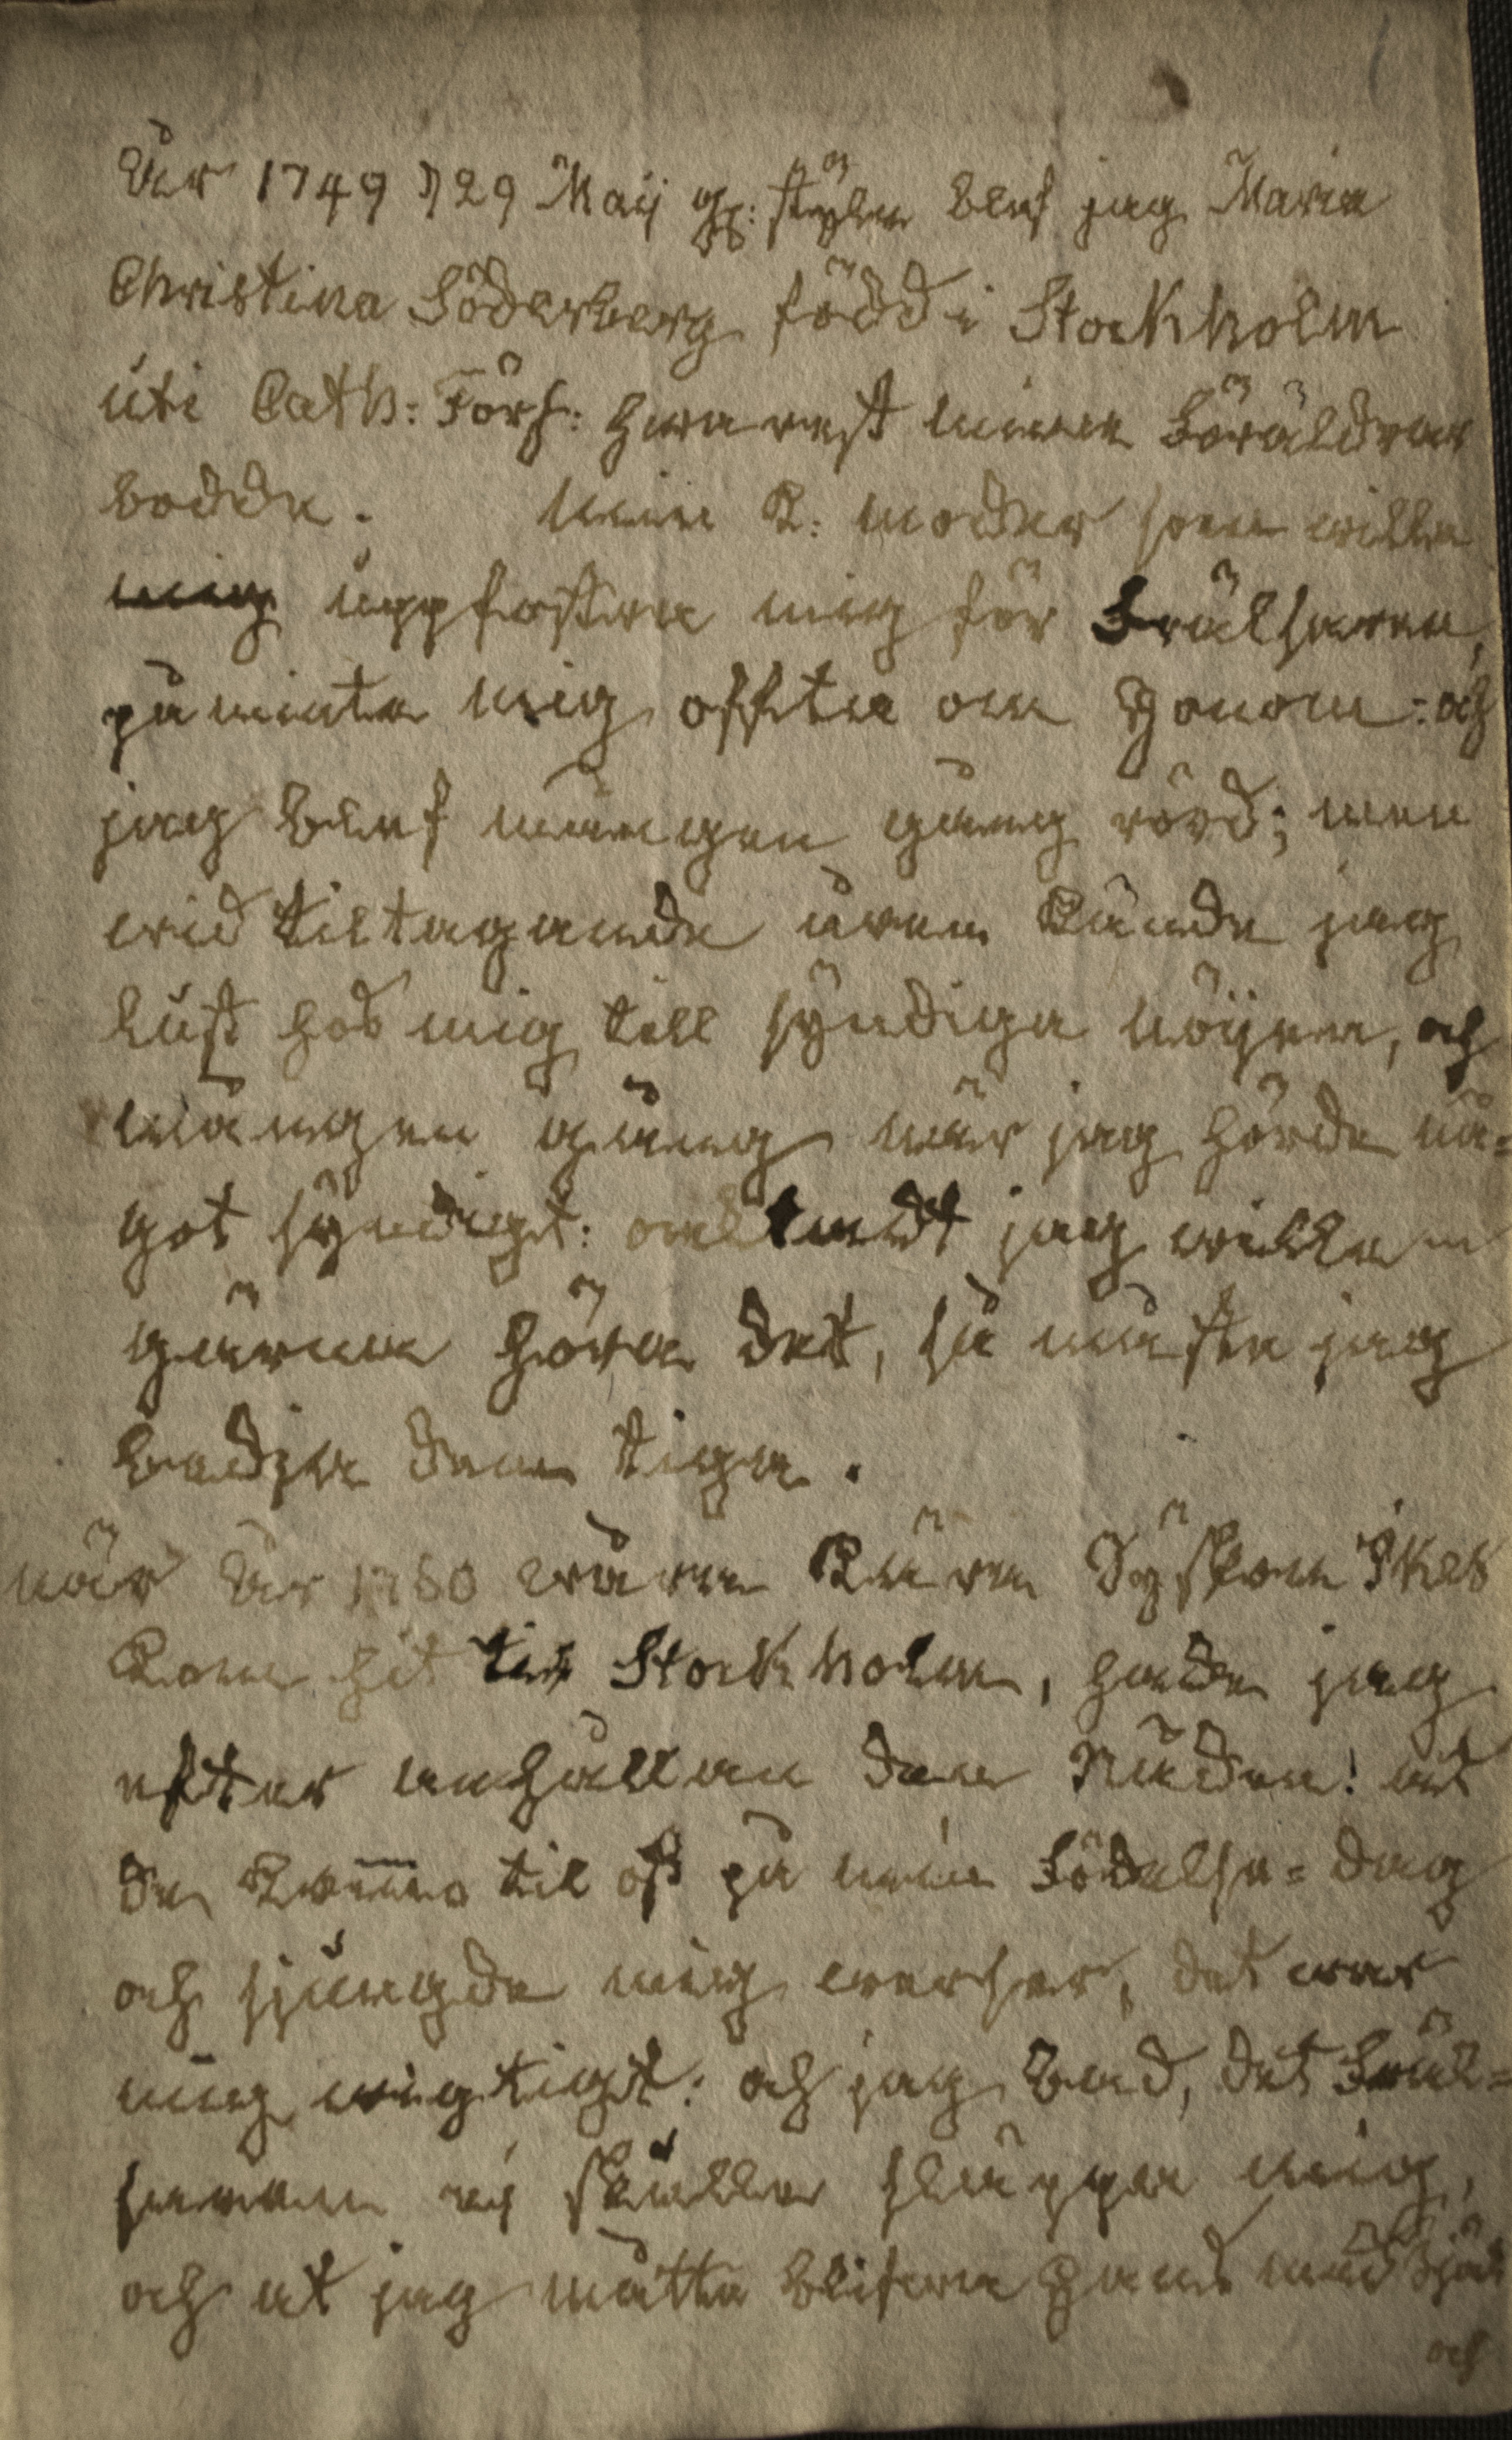 År 1749 d 29 Maij g: stylen blef jag Maria
Christina Söderberg född i Stockholm
uti Cath: Förs: hwarest mina Föräldrar
bodde. Min K: moder som wille
mig uppfostra mig för Frälsaren,
påminte mig offta om Honom: och
jag blef mången gång rörd; men
wid tiltagande åren kände jag
lust hos mig till syndiga nöijen, och
mången gång när jag hörde nå=
got syndigt: omtendt jag wille
gärna höra det, så måste jag
bedja dem tiga.
när År 1760 wåra Kära Syskon
kom hit til Stockholm, hade jag
efter anhållan den Nåden! at
de komo til oss på min Födelse=dag
och sjungde mig werser, det war
mig wigtigt: och jag bad, det Fräl=
saren ej skulle släppa mig,
och at jag måtte blifwa hans
och